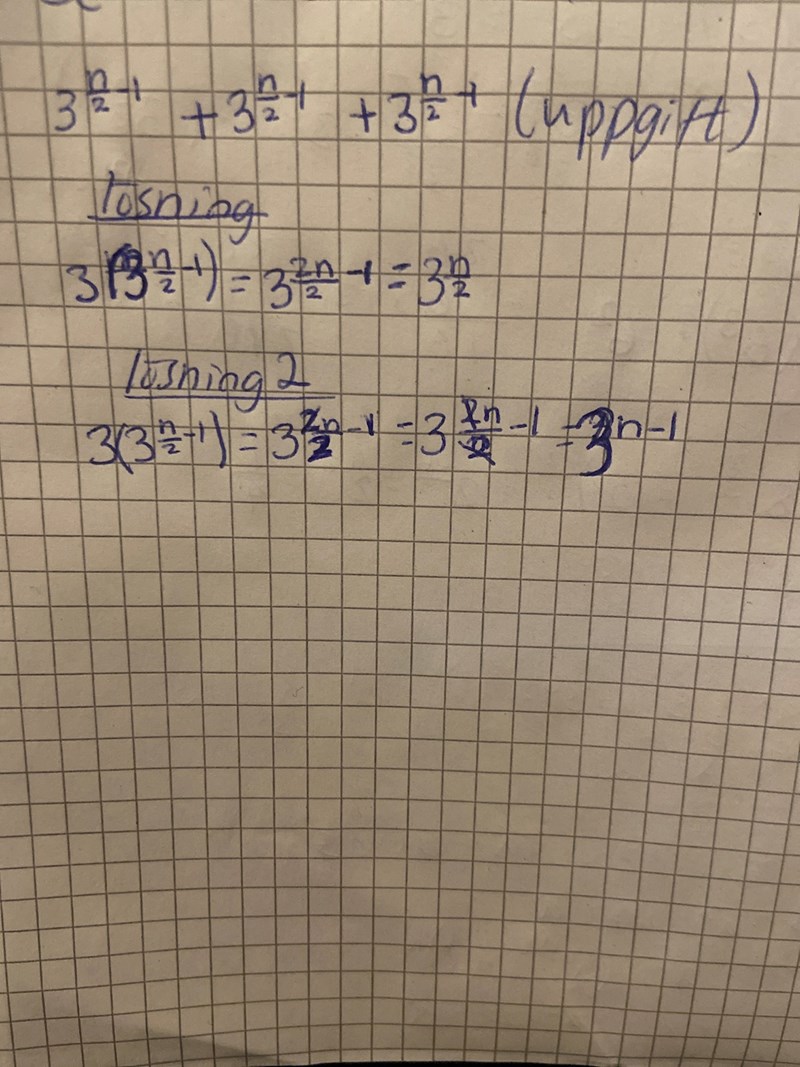 3^(n/2 -1) + 3^(n/2 -1) + 3^(n/2 -1) (uppgift)
lösning
3(3^(n/2 -1)) = 3^(2n/2 -1) = 3^(n/2)
lösning 2
3(3^(n/2 -1)) = 3^(2n/2 -1) = 3^(2n/2 -1) = 3^(n-1)